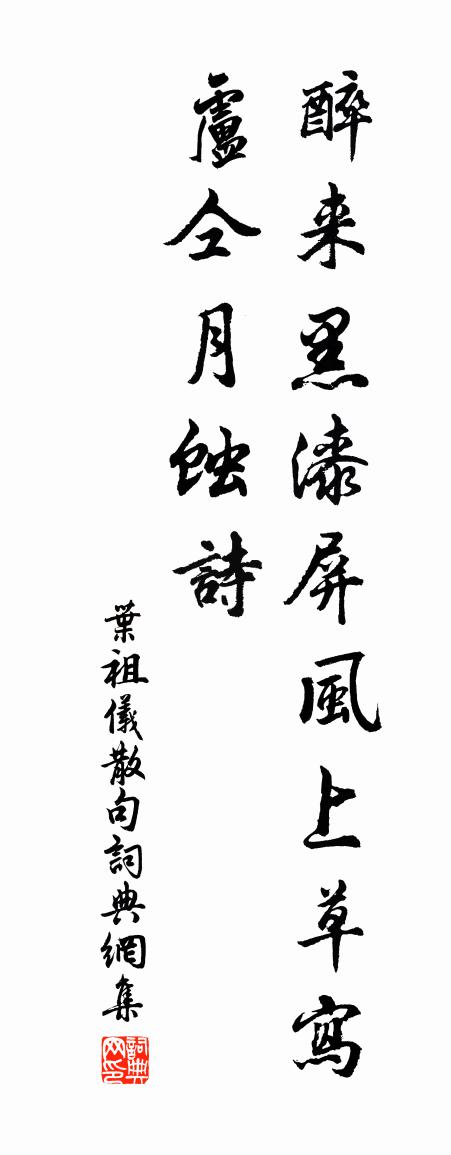 醉来黑漆屏風上草寫
盧仝月蝕詩
葉祖儀散句詞典網集
詞典网印